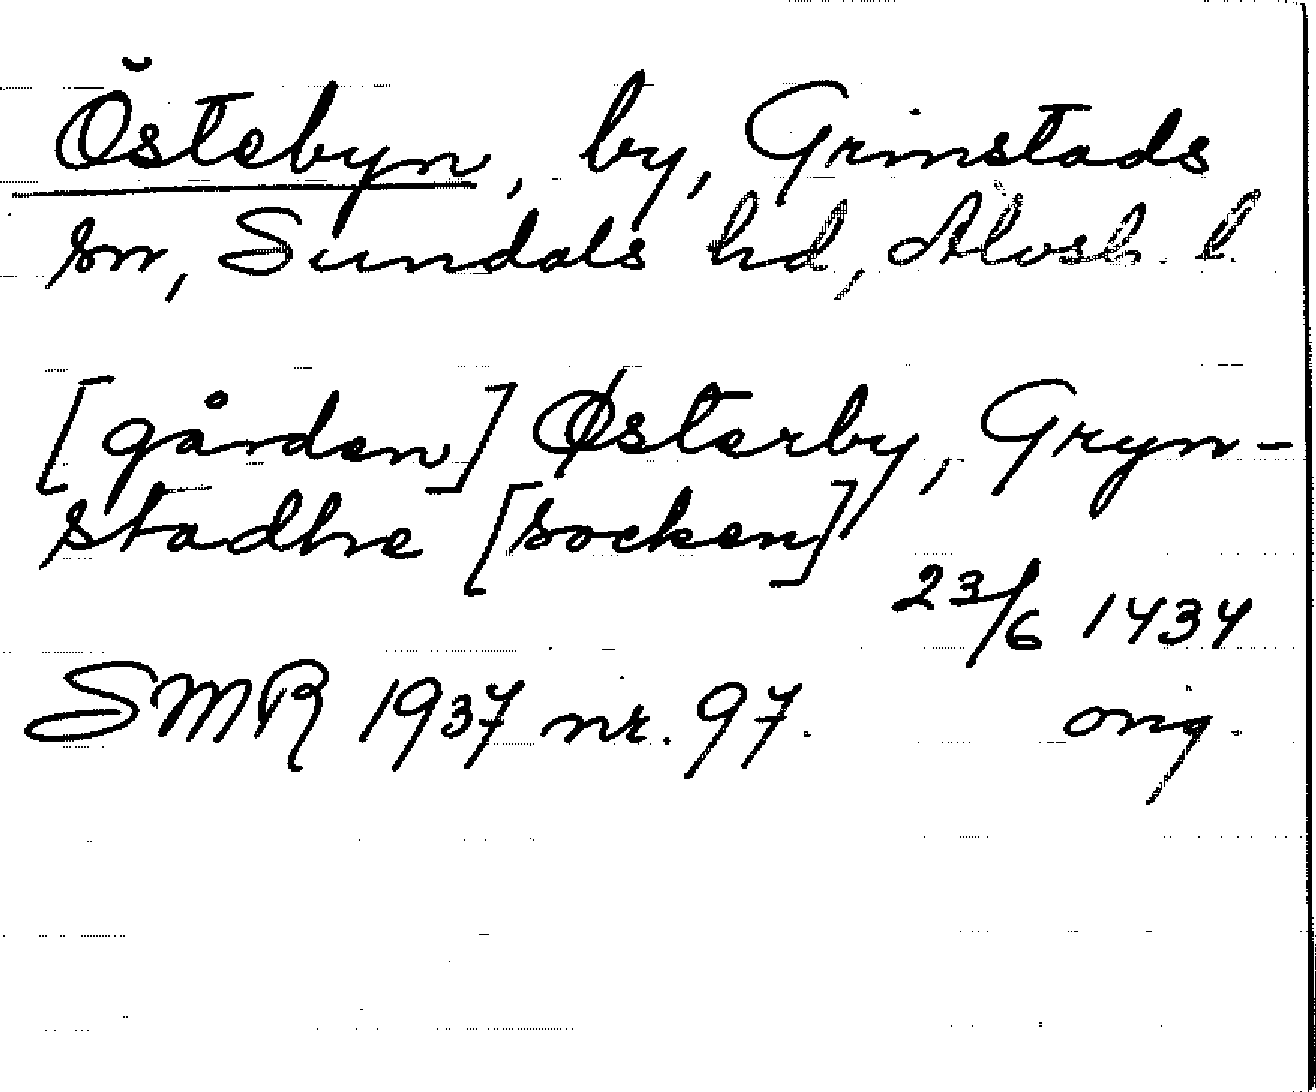 Östebyn, by, Grinstads
sn, Sundals hd, Älvsb. l.
[gården] Østerby, Gryn-
stadhe [socken]
23/6 1434
SMR 1937 nr. 97. orig.